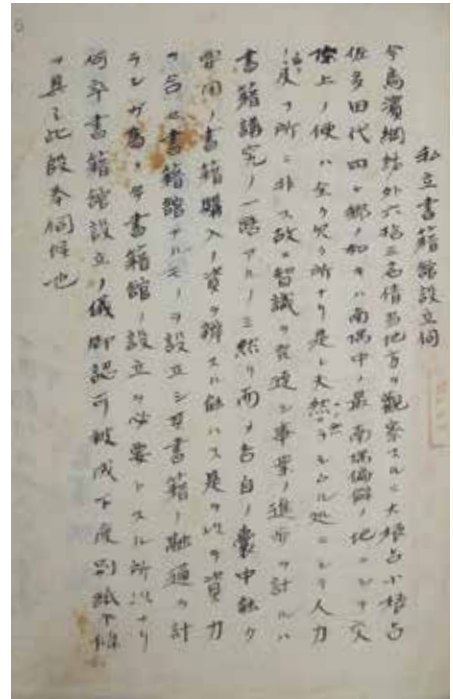 私立書籍館設立伺
今鳥濱綱結外六拾三名倩当地方ヲ観察スルニ大根占小根占
佐多田代四ヶ郷ノ如キハ南隅中ノ最南隅偏僻ノ地ニシテ交
際上ノ便ハ全ク欠ク所ナリ是レ天然ノ然ラシムル処ニシテ人力
ノ及フ所ニ非ス故ニ智識ヲ発達シ事業ノ進歩ヲ計ルハ
書籍講究ノ一路アルノミ然リ而メ各自ノ嚢中能ク
需用ノ書籍購入ノ資ヲ辨スル能ハス是ヲ以テ資力
ヲ合セ書籍館ナルモノヲ設立シ其書籍ノ融通ヲ計
ラレガ為メ本書籍館ノ設立ヲ必要トスル所以ナリ
何卒書籍館設立ノ儀御認可被成下度別紙ケ條
ヲ具シ此段奉伺候也